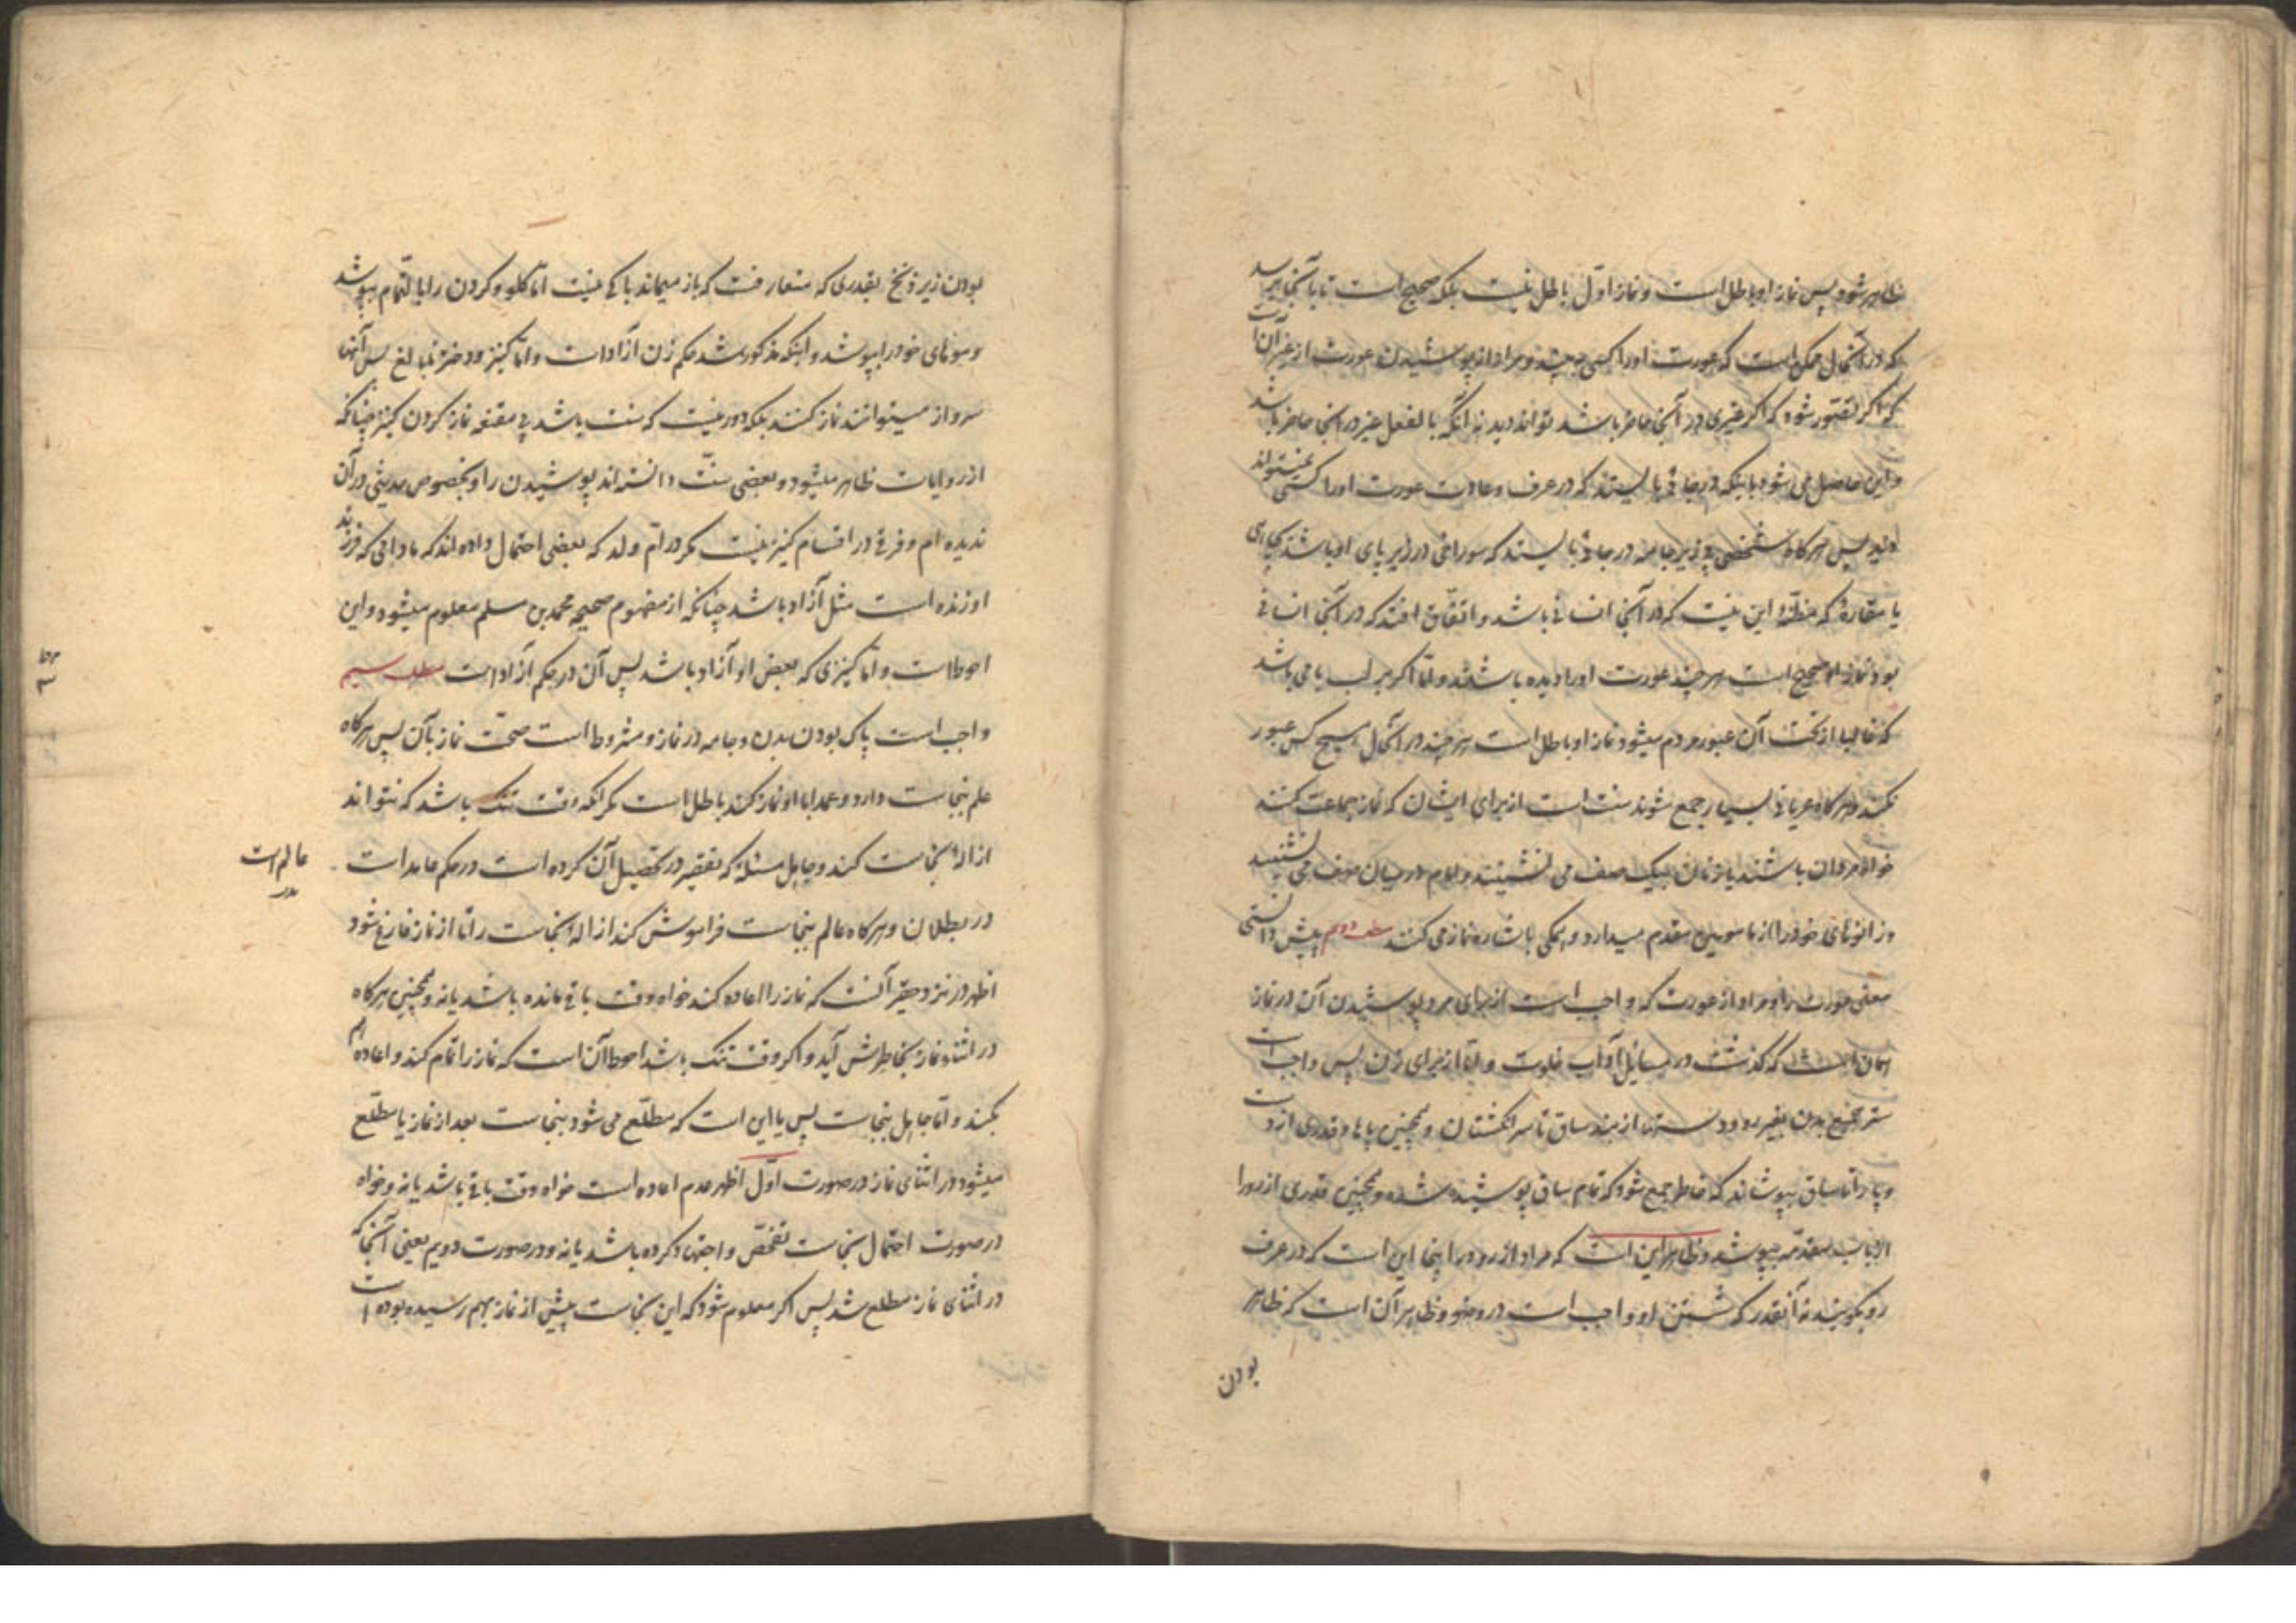 ظاهر شود پس نماز او باطل است و نماز اول باطل نیست بلکه صحیح است تا بآنجا برسد
که در آنحال ممکن است که عورت او را کسی به بیند و مراد از پوشیدن عورت از غیر آن است
که اگر تصور شود که اگر غیری در آنجا حاضر باشد تواند دید نه آنکه بالفعل غیر در آنجا حاضر باشد
و این حاصل می شود باینکه در جائی بایستد که در عرف و عادت عورت او را کسی نمیتواند
دید پس هرگاه شخصی بی زیرجامه در جائی بایستد که سوراخی در زیر پای او باشد
یا مغاره که مظنه این نیست که در آنجا انسانی باشد و اتفاق افتد که در آنجا انسانی
بود نماز او صحیح است هر چند عورت او را دیده باشند و اما اگر بر لب بامی باشد
که غالبا از تحت آن عبور مردم میشود نماز او باطل است هر چند در آنحال هیچ کس عبور
نکند و هرگاه عریانی بسیار جمع شوند سنت است از برای ایشان که نماز جماعت کنند
خواه مردان باشند یا زنان بیک صف می نشینند و امام در میان صف می نشیند
و زانوهای خود را از مامومین مقدم میدارد و همگی باشاره نماز می کنند مطلب دویم پیش دانستی
معنی عورت را و مراد از عورت که واجب است از برای مرد پوشیدن آن در نماز
همان است که گذشت در مسائل آداب خلوت و اما از برای زن پس واجب است
ستر جمیع بدن بغیر رو و دستها از بند ساق تا سر انگشتان و همچنین پاها و قدری از دست
و پا را تا ساق بپوشاند که خاطر جمع شود که تمام ساق پوشیده شده و همچنین قدری از رو را
از باب مقدمه بپوشد و ظاهر این است که مراد از رو در اینجا این است که در عرف
رو بگویند نه آنقدر که شستن او واجب است در وضو و ظاهر آن است که ظاهر
بودن
بودن زیر زنخ بقدری که متعارفست که باز میماند باکی نیست اما گلو و گردن را بالتمام بپوشد
و موهای خود را بپوشد و اینکه مذکور شد حکم زن آزاد است و اما کنیز و دختر نابالغ پس آنها
سرواز میتوانند نماز کنند بلکه دور نیست که سنت باشد بی مقنعه نماز کردن کنیز چنانکه
از روایات ظاهر میشود و بعضی سنت دانسته اند پوشیدن را و بخصوص حدیثی در آن
ندیده ام و فرقی در اقسام کنیز نیست مگر در ام ولد که بعضی احتمال داده اند که مادامی که فرزند
او زنده است مثل آزاد باشد چنانکه از مفهوم صحیحه محمد بن مسلم معلوم میشود و این
احوط است و اما کنیزی که بعض او آزاد باشد پس آن در حکم آزاد است مطلب سیم
واجب است پاک بودن بدن و جامه در نماز و مشروط است صحت نماز بآن پس هرگاه
علم بنجاست دارد و عمدا با او نماز کند باطل است مگر آنکه وقت تنگ باشد که نتواند
ازاله نجاست کند و جاهل مسئله که تقصیر در تحصیل آن کرده است در حکم عامد است
عالم است
در بطلان و هرگاه عالم بنجاست فراموش کند ازاله نجاست را تا از نماز فارغ شود
اظهر در نزد حقیر آنست که نماز را اعاده کند خواه وقت باقی مانده باشد یا نه و همچنین هرگاه
در اثناء نماز بخاطرش آید و اگر وقت تنگ باشد احوط آن است که نماز را تمام کند و اعاده هم
بکند و اما جاهل بنجاست پس یا این است که مطلع می شود بنجاست بعد از نماز یا مطلع
میشود در اثنای نماز در صورت اول اظهر عدم اعاده است خواه وقت باقی باشد یا نه و خواه
در صورت احتمال نجاست تفحص و اجتهاد کرده باشد یا نه و در صورت دویم یعنی آنجا که
در اثنای نماز مطلع شد پس اگر معلوم شود که این نجاست پیش از نماز بهم رسیده بوده است